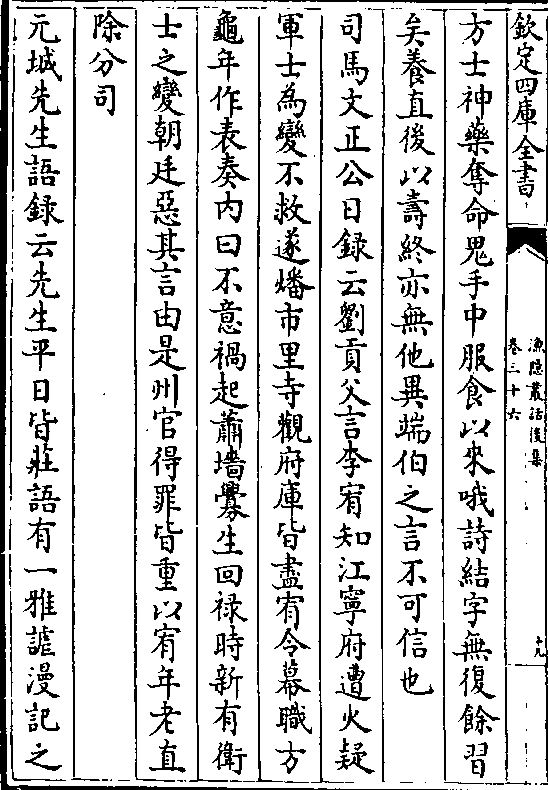 欽定四庫全書
漁隱叢話後集
卷三十六
十九
方士神藥奪命鬼手中服食以來哦詩結字無復餘習
矣養直後以壽終亦無他異端伯之言不可信也
司馬文正公日録云劉貢父言李宥知江寧府遭火疑
軍士為變不救遂燔市里寺觀府庫皆盡宥令幕職方
龜年作表奏内曰不意禍起蕭墻釁生回禄時新有衛
士之變朝廷惡其言由是州官得罪皆重以宥年老直
除分司
元城先生語録云先生平日皆莊語有一雅謔漫記之